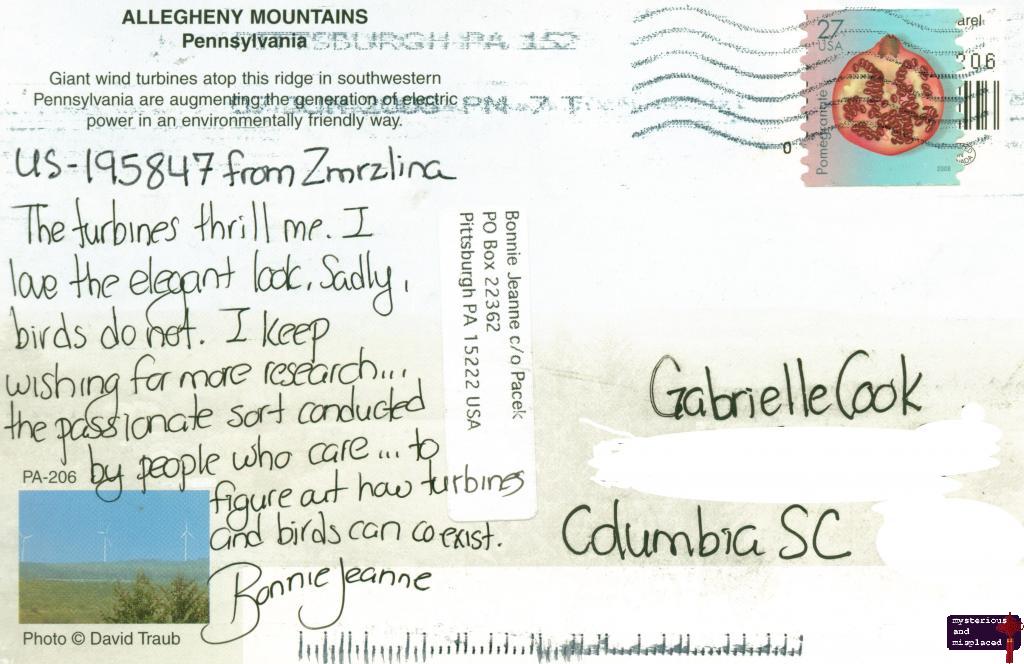 ALLEGHENY MOUNTAINS
Pennsylvania
Giant wind turbines atop this ridge in southwestern
Pennsylvania are augmenting the generation of electric
power in an environmentally friendly way.
PITTSBURGH PA 152
PM 7 T
27
USA
Pomegranate
2008
arel
206
0
US-195847 from Zmrzlina
The turbines thrill me. I
love the elegant look. Sadly,
birds do not. I keep
wishing for more research...
the passionate sort conducted
by people who care... to
figure out how turbines
and birds can coexist.
Bonnie Jeanne
Bonnie Jeanne c/o Pacek
PO Box 22362
Pittsburgh PA 15222 USA
Gabrielle Cook
Columbia SC
PA-206
Photo © David Traub
mysterious
and
misplaced